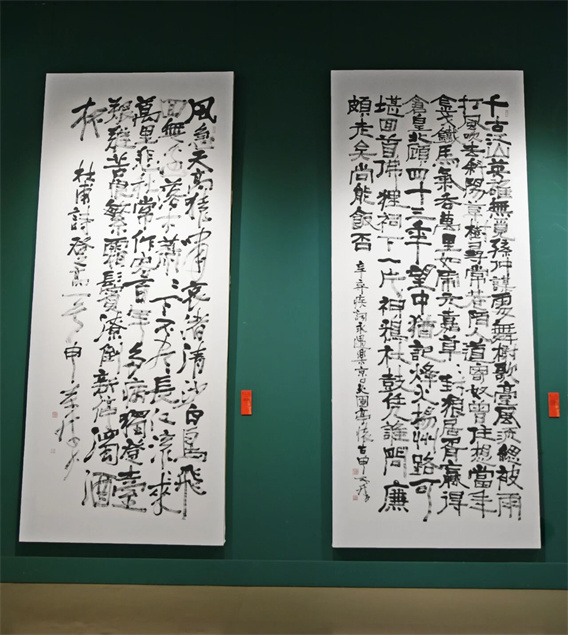 千古江山英雄無覓孫仲謀處舞榭歌臺風流總被雨
打風吹去斜陽草樹尋常巷陌人道寄奴曾住想當年
金戈鐵馬氣吞萬里如虎元嘉草〻封狼居胥贏得
倉皇北顧四十三年望中猶記烽火揚州路可
堪回首佛狸祠下一片神鴉社鼓誰問廉
頗老矣尚能飯否
辛弃疾詞永遇樂京口北固亭懷古
風急天高猿嘯哀渚清沙白鳥飛
回無邊落木蕭〻下不尽長江來
萬里悲秋常作客百年多病獨登臺
艱難苦恨繁霜鬢潦倒新停濁酒
杯
杜甫詩登高一首